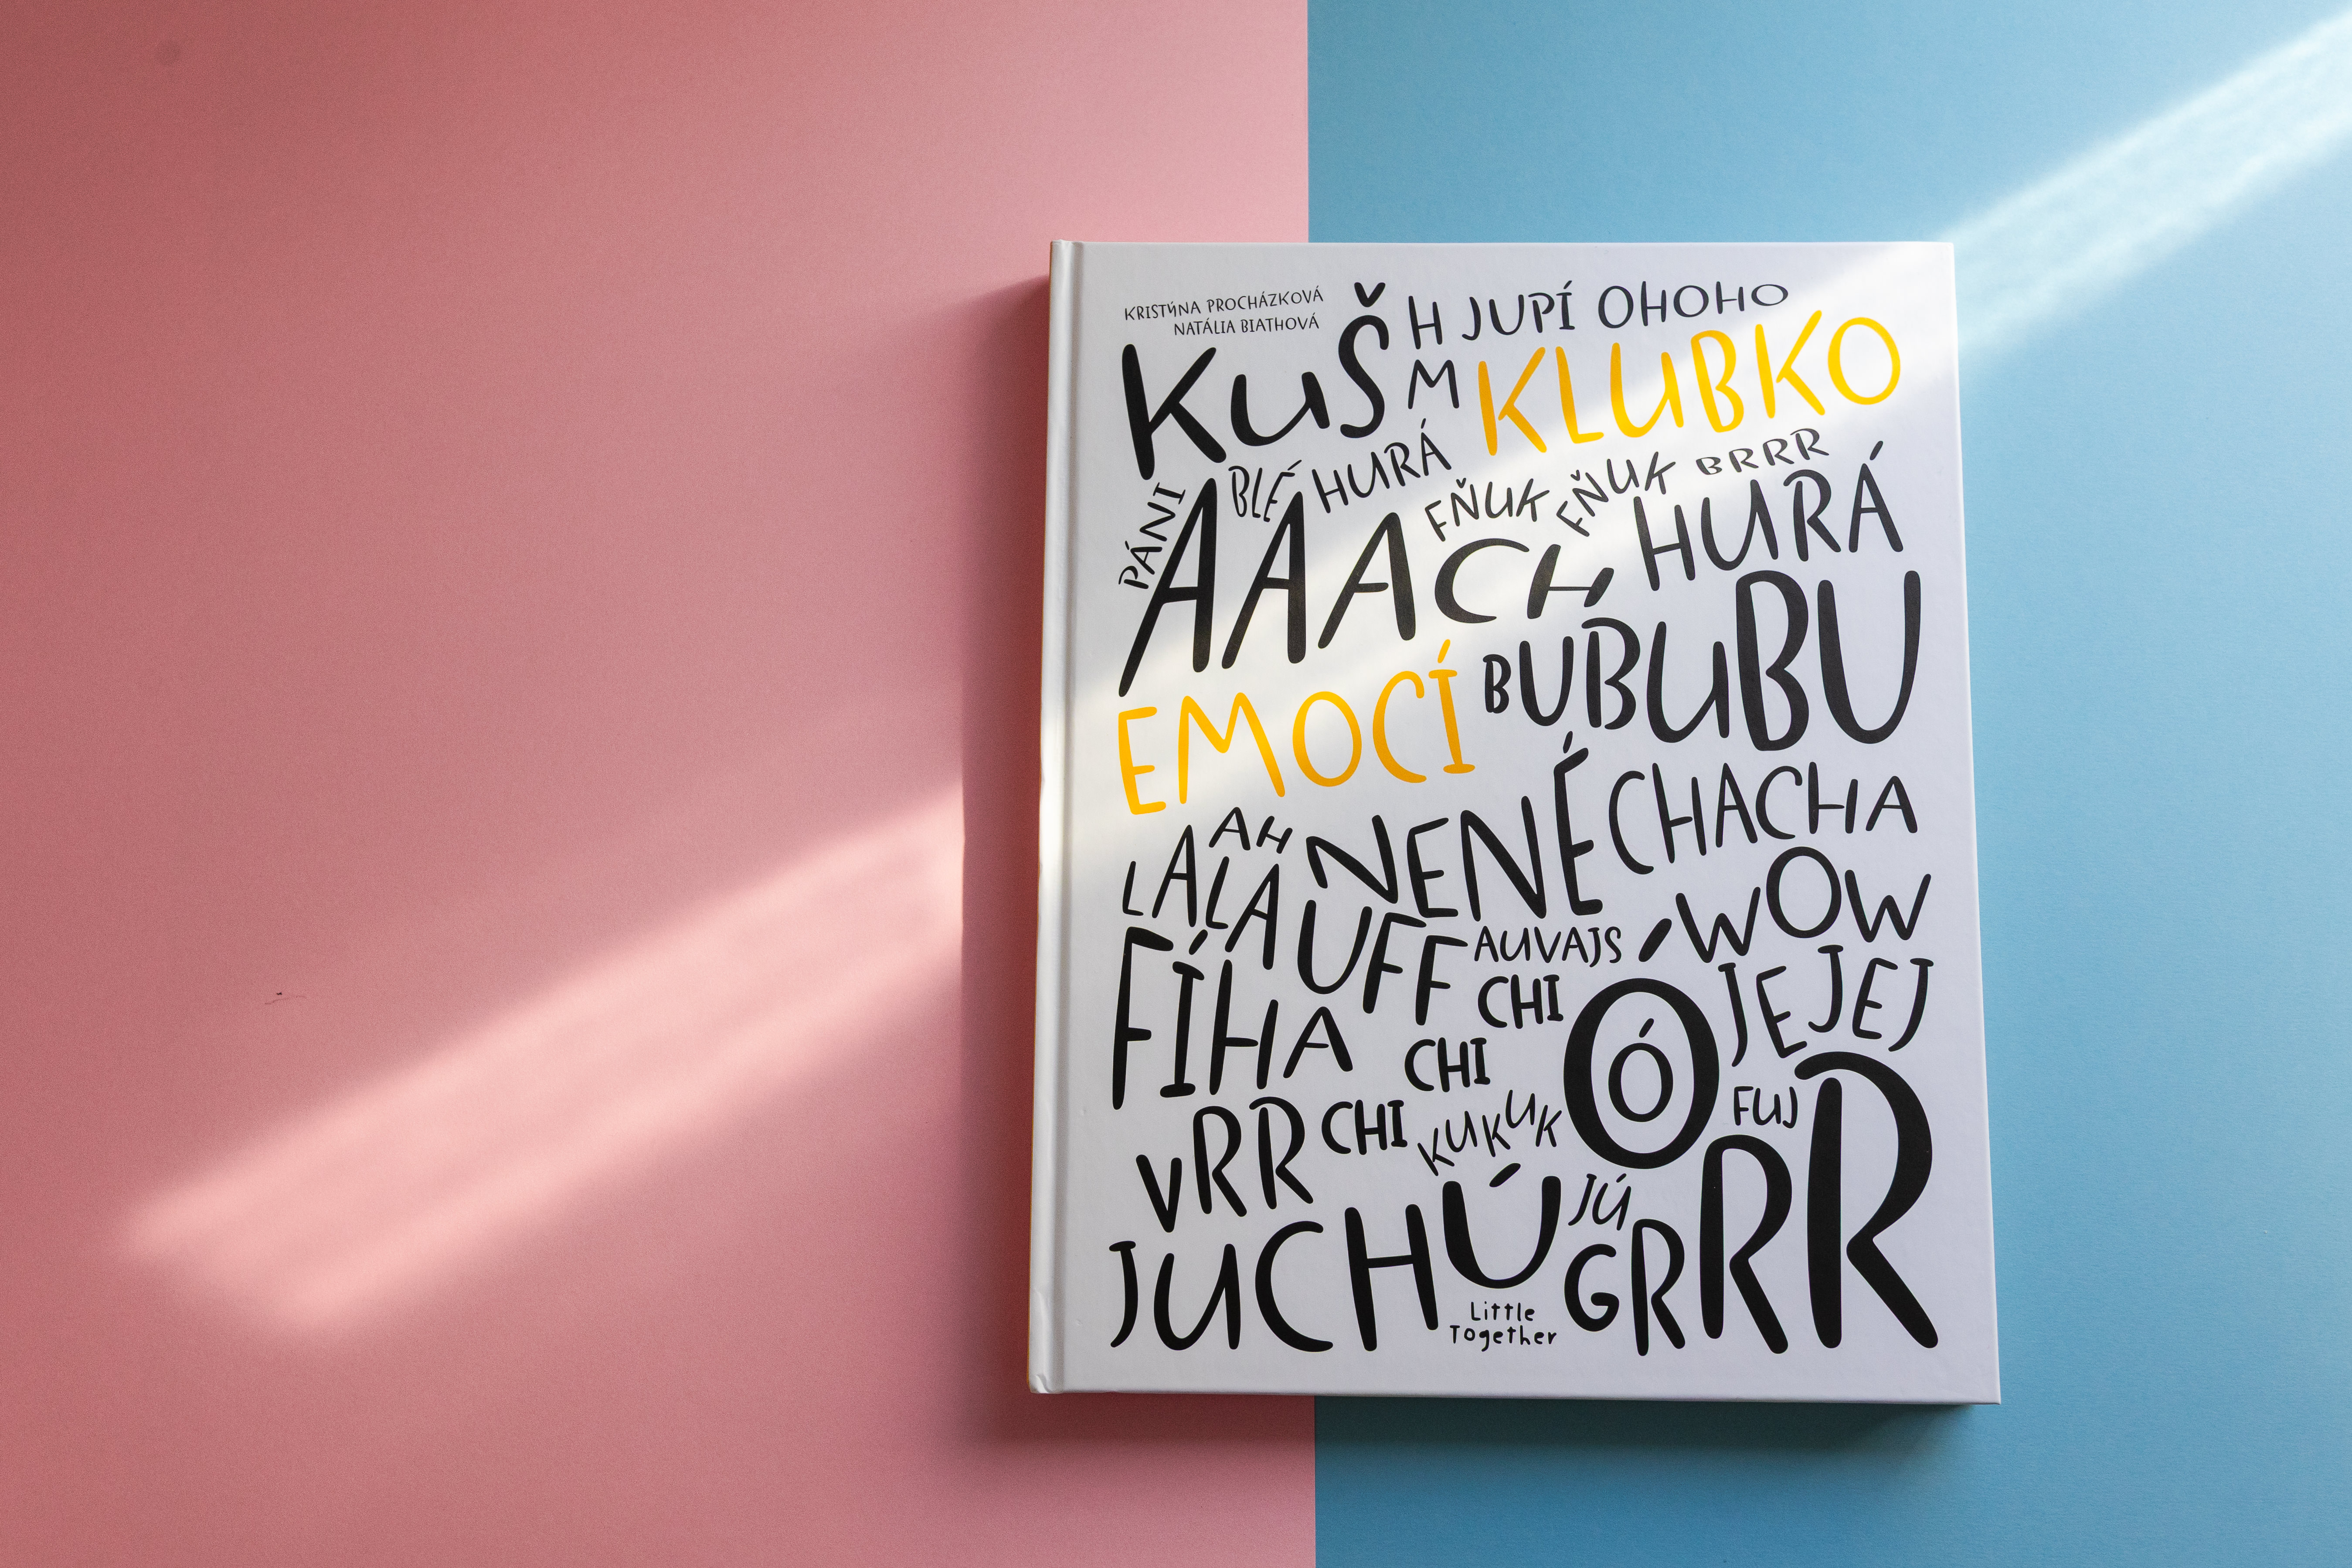 KRISTÝNA PROCHÁZKOVÁ
NATÁLIA BIATHOVÁ
KUŠ
H JUPÍ OHOHO
M KLUBKO
PÁNI
BLÉ HURÁ
FŇUK FŇUK BRRR
AAACH HURÁ
EMOCÍ BUBUBU
AH
LALA NENÉ CHACHA
UFF AUVAJS WOW
FÍHA CHI Ó JEJEJ
CHI Ó
VRR CHI KUKUK FUJ
JUCHÚ JÚ GRRR
Little
Together